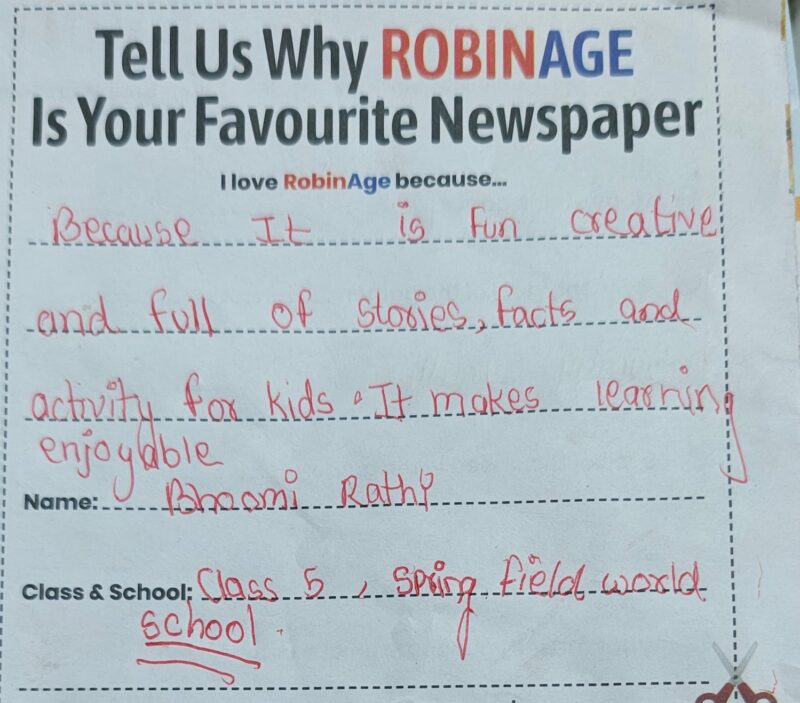 Tell Us Why ROBINAGE
Is Your Favourite Newspaper
I love RobinAge because...
Because It is Fun creative
and full of stories, facts and
activity for kids. It makes learning
enjoyable
Name: Bhoomi Rathi
Class & School: Class 5, Spring field world
school.